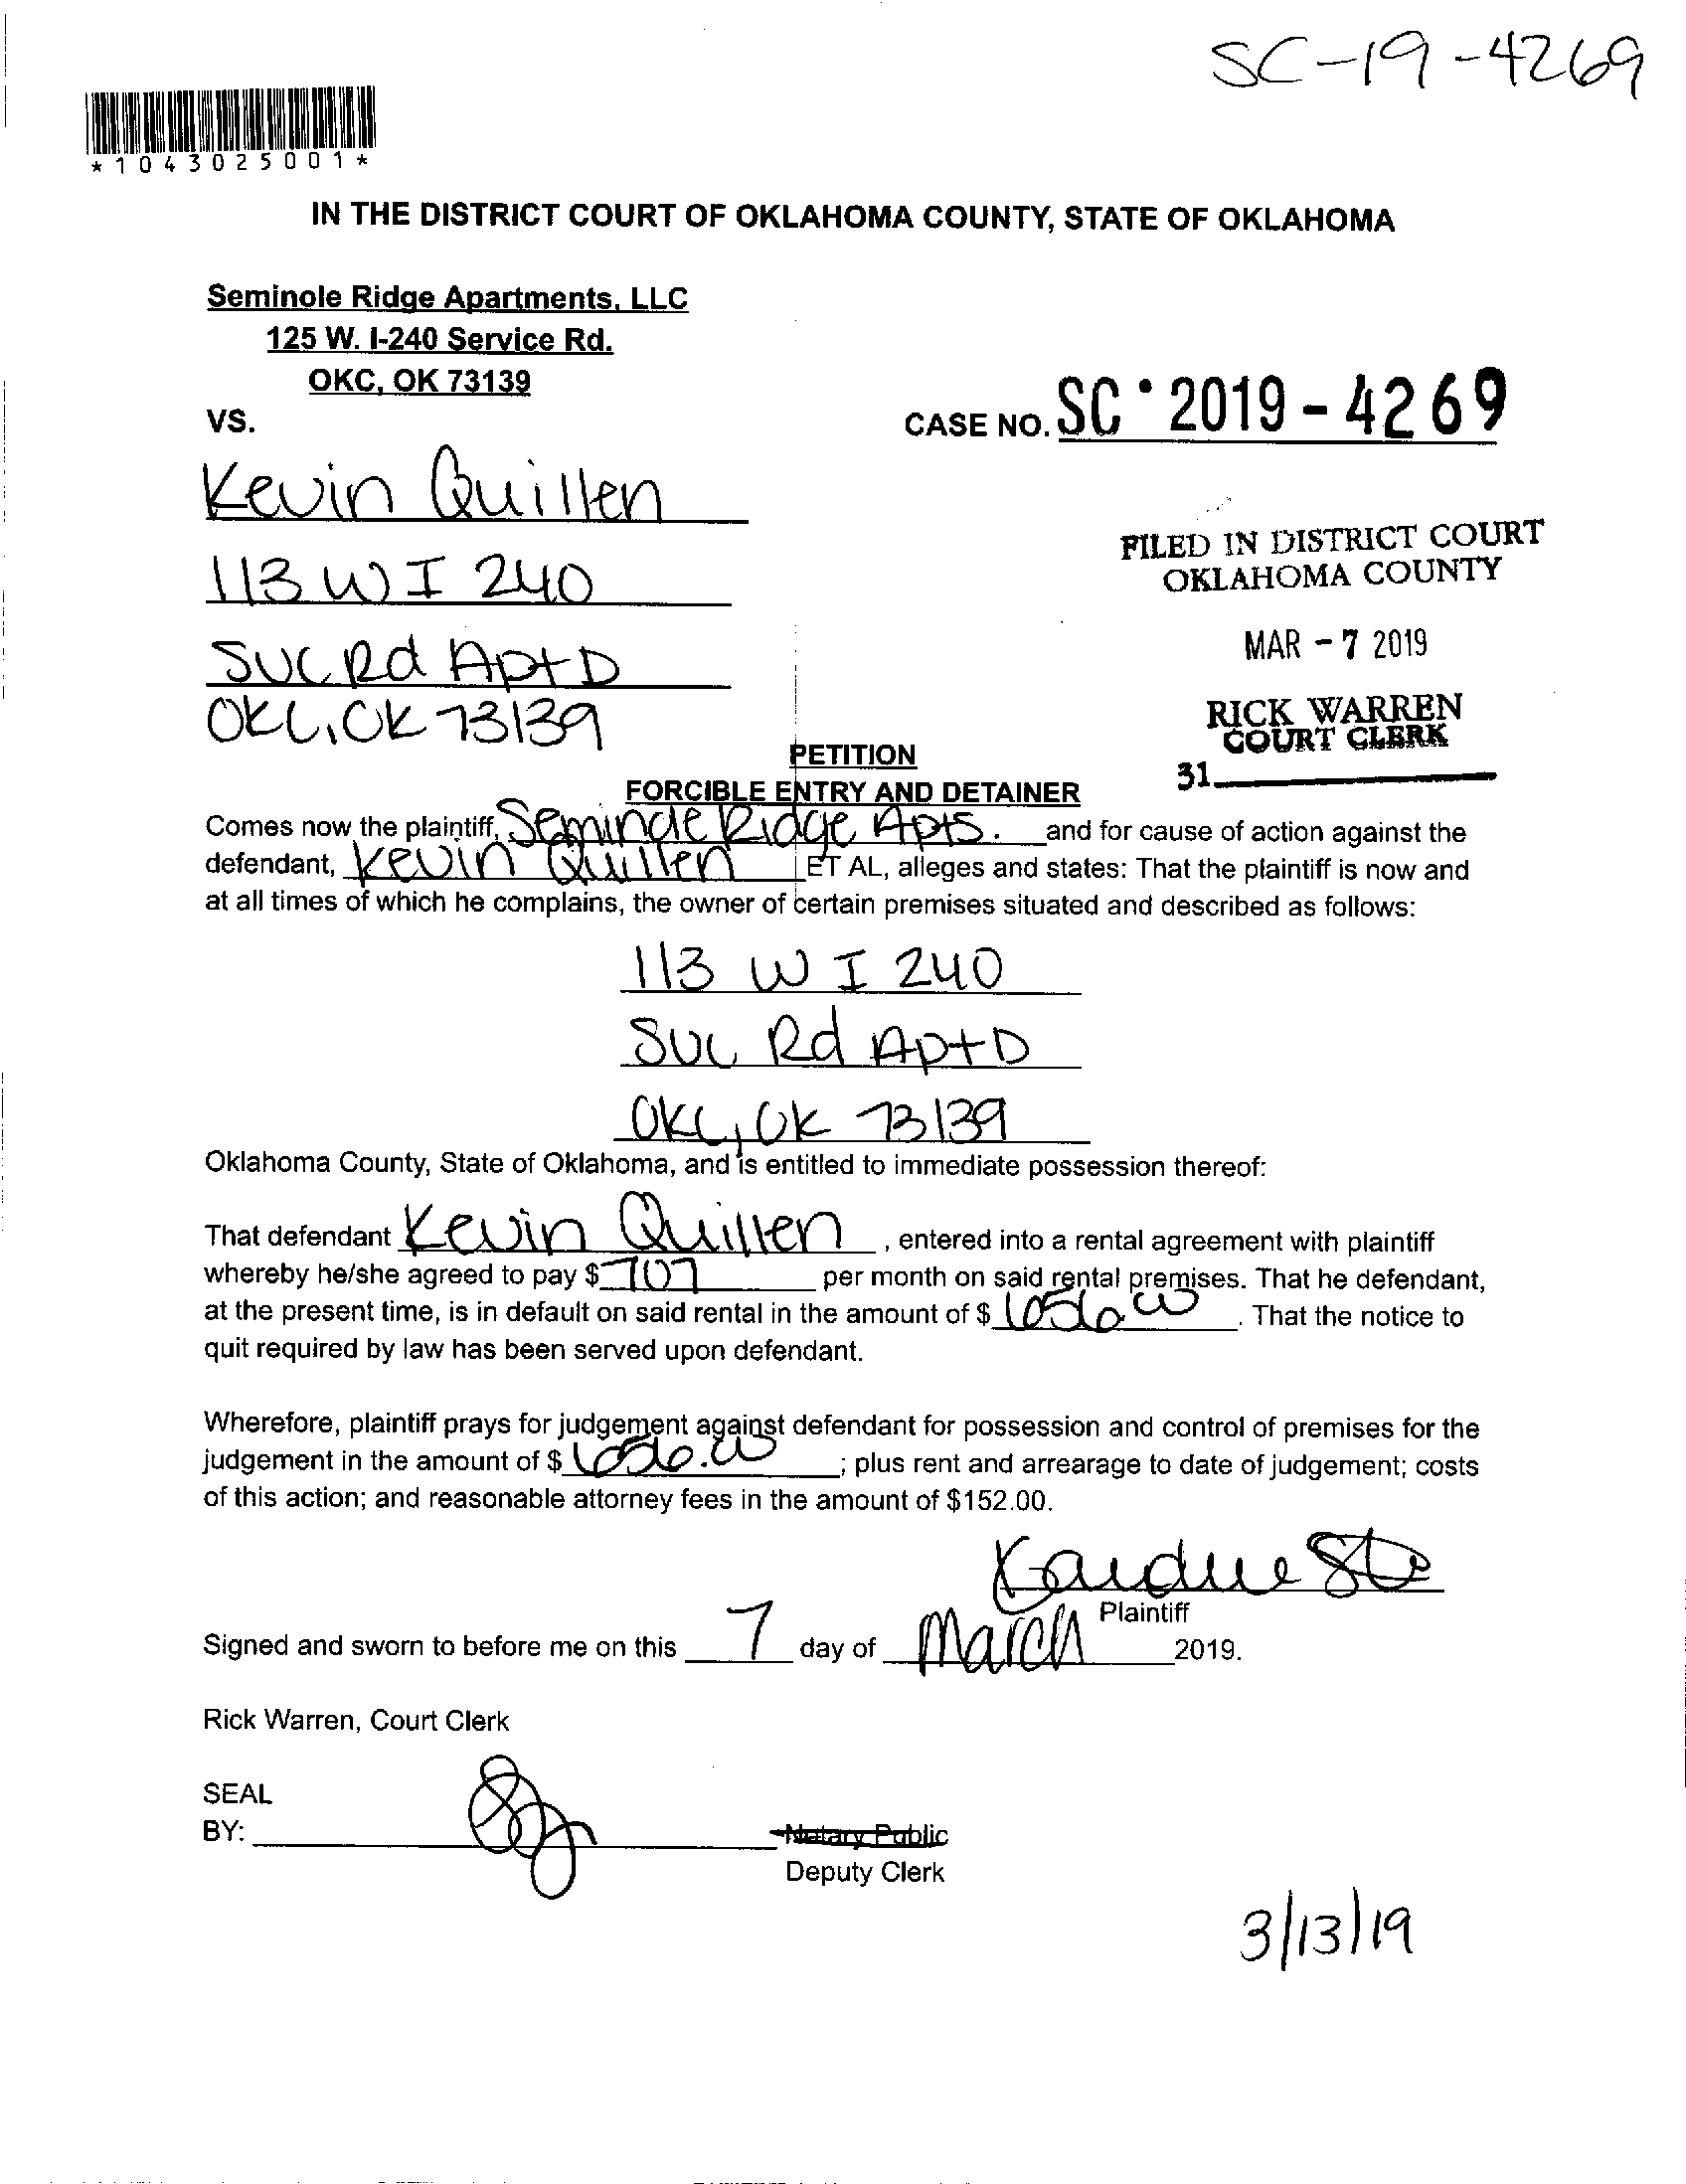 SC-19-4269
*1043025001*
IN THE DISTRICT COURT OF OKLAHOMA COUNTY, STATE OF OKLAHOMA
Seminole Ridge Apartments, LLC
125 W. I-240 Service Rd.
OKC, OK 73139
VS.
CASE NO. SC 2019-4269
Kevin Quillen
113 W I 240
SVC Rd Apt D
OKC, OK 73139
FILED IN DISTRICT COURT
OKLAHOMA COUNTY
MAR - 7 2019
RICK WARREN
COURT CLERK
31
PETITION
FORCIBLE ENTRY AND DETAINER
Comes now the plaintiff, Seminole Ridge Apts. and for cause of action against the
defendant, Kevin Quillen ET AL, alleges and states: That the plaintiff is now and
at all times of which he complains, the owner of certain premises situated and described as follows:
113 W I 240
SVC Rd Apt D
OKC, OK 73139
Oklahoma County, State of Oklahoma, and is entitled to immediate possession thereof:
That defendant Kevin Quillen, entered into a rental agreement with plaintiff
whereby he/she agreed to pay $ 707 per month on said rental premises. That he defendant,
at the present time, is in default on said rental in the amount of $ 1056.00. That the notice to
quit required by law has been served upon defendant.
Wherefore, plaintiff prays for judgement against defendant for possession and control of premises for the
judgement in the amount of $ 1056.00; plus rent and arrearage to date of judgement; costs
of this action; and reasonable attorney fees in the amount of $152.00.
Plaintiff
Signed and sworn to before me on this 7 day of March 2019.
Rick Warren, Court Clerk
SEAL
BY: Notary Public
Deputy Clerk
3/13/19